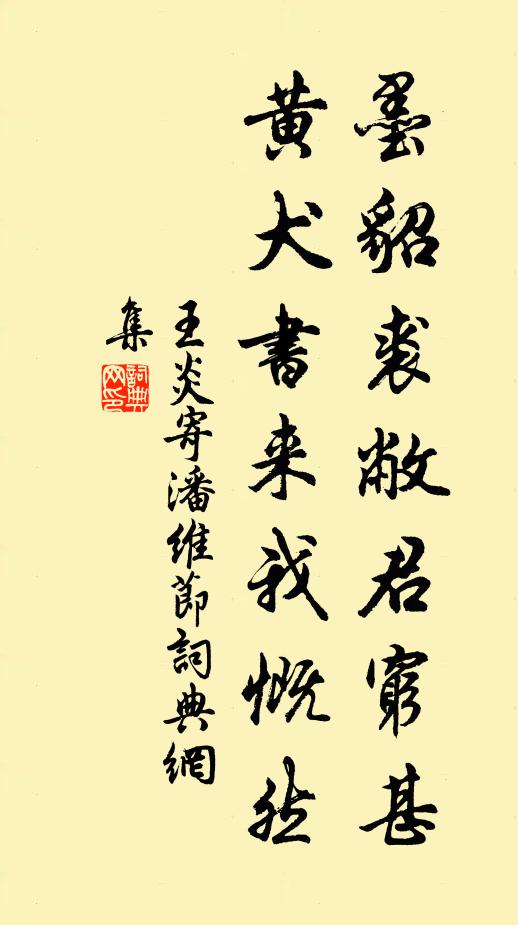 墨貂裘敝君窮甚
黄犬書来我慨然
王炎寄潘維節詞典網
集
詞典網印